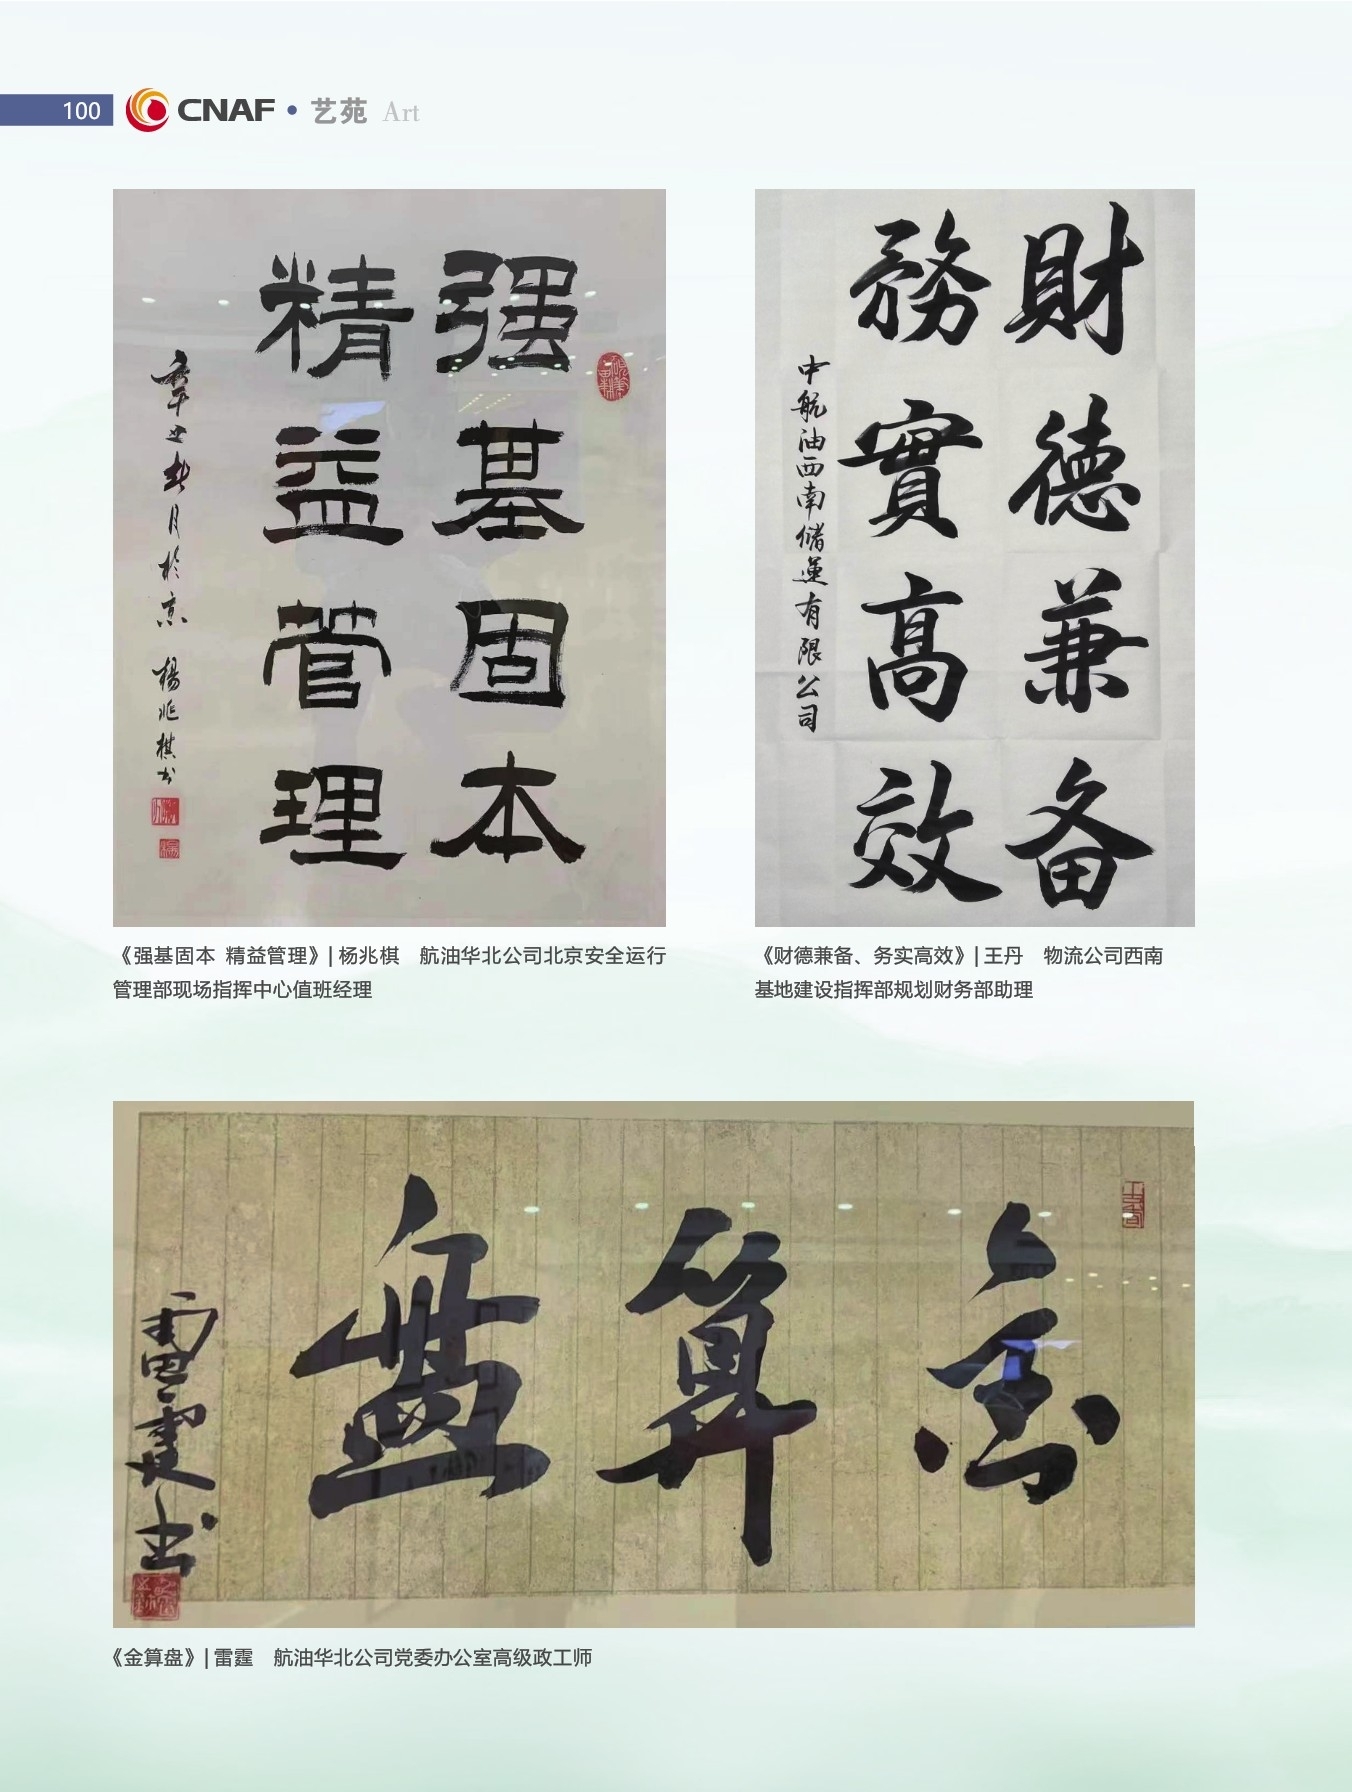 100 CNAF · 艺苑 Art
强基固本
精益管理
辛丑
月於京 楊兆棋书
《强基固本 精益管理》| 杨兆棋 航油华北公司北京安全运行
管理部现场指挥中心值班经理
財德兼备
務實高效
中航油西南储運有限公司
《财德兼备、务实高效》| 王丹 物流公司西南
基地建设指挥部规划财务部助理
金算盘
雷霆书
《金算盘》| 雷霆 航油华北公司党委办公室高级政工师